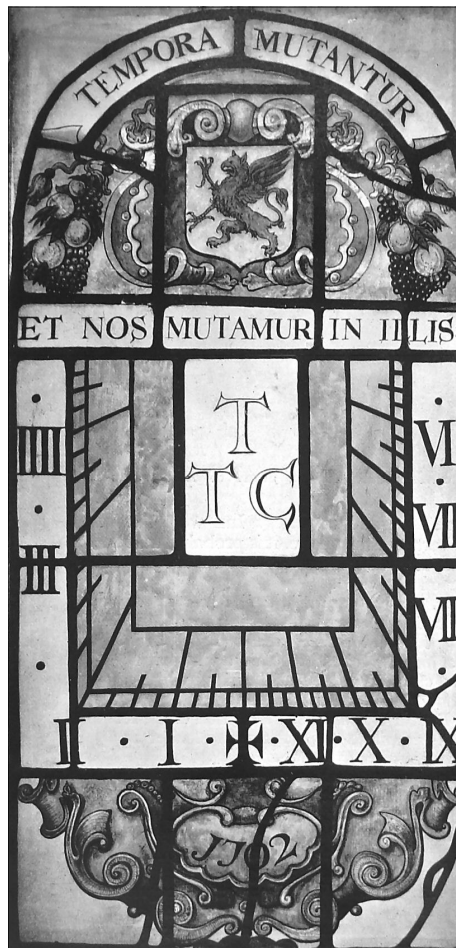 TEMPORA MUTANTUR
ET NOS MUTAMUR IN ILLIS
T
T C
IIII
VI
VII
III
VIII
II · I · ✠ · XI · X · IX
1702